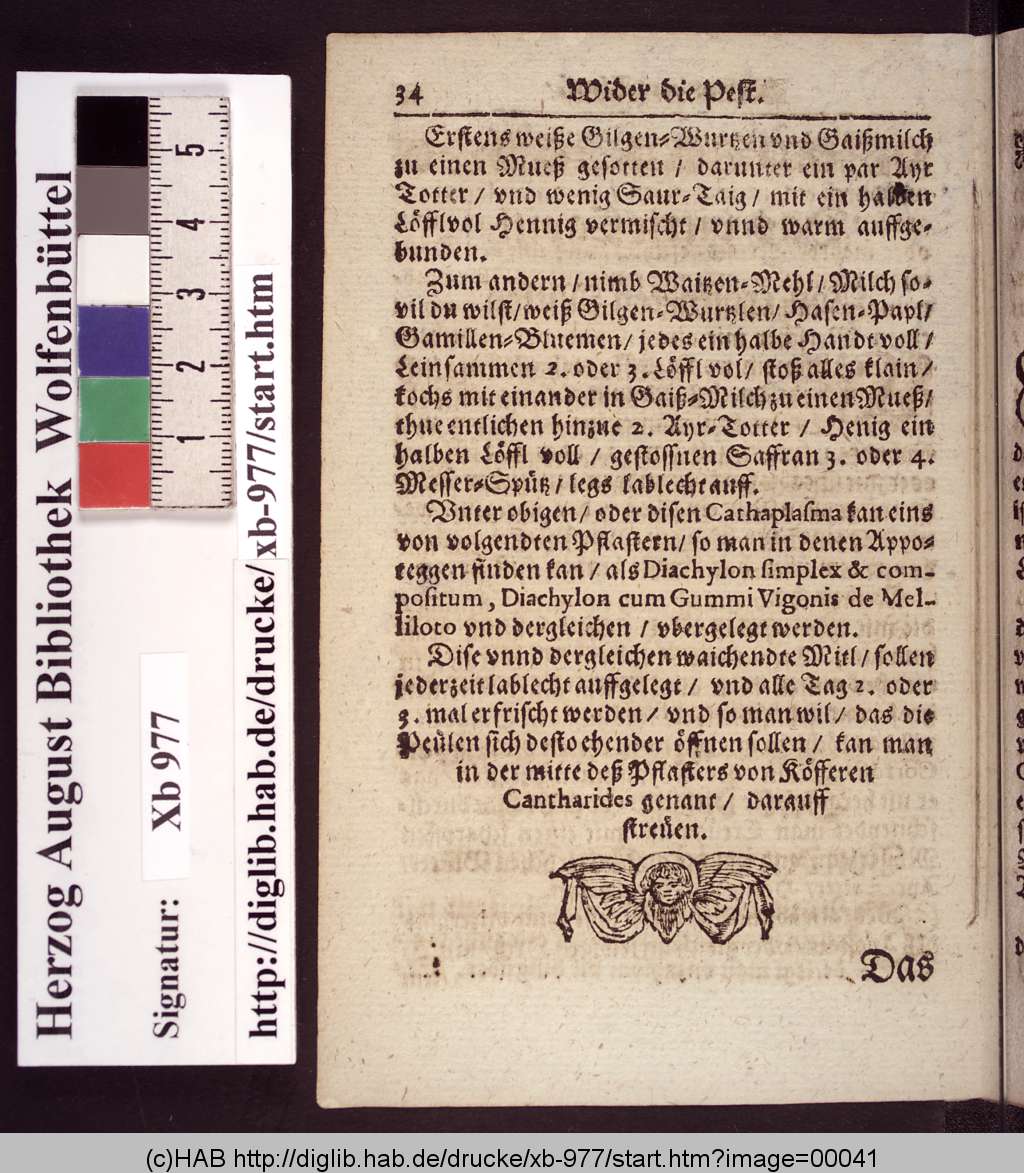 34 Wider die Pest.
Erstens weiße Gilgen-Wurtzen vnd Gaißmilch
zu einen Mueß gesotten / darunter ein par Ayr
Totter / vnd wenig Saur-Taig / mit ein halben
Löfflvol Hennig vermischt / vnnd warm auffge-
bunden.
Zum andern / nimb Waitzen-Mehl / Milch so-
vil du wilst / weiß Gilgen-Wurtzlen / Hasen-Papl /
Gamillen-Bluemen / jedes ein halbe Handt voll /
Leinsammen 2. oder 3. Löffl vol / stoß alles klain /
kochs mit einander in Gaiß-Milch zu einen Mueß /
thue entlichen hinzue 2. Ayr-Totter / Henig ein
halben Löffl voll / gestossnen Saffran 3. oder 4.
Messer-Spütz / legs lablecht auff.
Vnter obigen / oder disen Cathaplasma kan eins
von volgendten Pflastern / so man in denen Appo-
teggen finden kan / als Diachylon simplex & com-
positum, Diachylon cum Gummi Vigonis de Mel-
liloto vnd dergleichen / vbergelegt werden.
Dise vnnd dergleichen waichendte Mitl / sollen
jederzeit lablecht auffgelegt / vnd alle Tag 2. oder
3. mal erfrischt werden / vnd so man wil / das die
Peülen sich desto ehender öffnen sollen / kan man
in der mitte deß Pflasters von Köfferen
Cantharides genant / darauff
streüen.
Das
Herzog August Bibliothek Wolfenbüttel
Signatur: Xb 977
http://diglib.hab.de/drucke/xb-977/start.htm
1 2 3 4 5
(c)HAB http://diglib.hab.de/drucke/xb-977/start.htm?image=00041